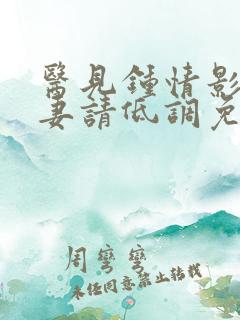 醫見鍾情影
妻請低調免
周彎彎
未经同意禁止转载